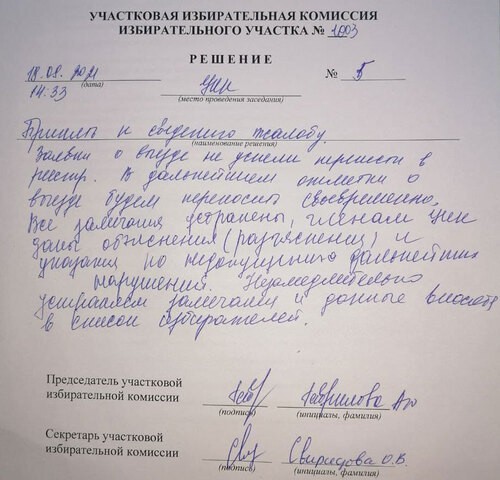 УЧАСТКОВАЯ ИЗБИРАТЕЛЬНАЯ КОМИССИЯ
ИЗБИРАТЕЛЬНОГО УЧАСТКА № 1003
РЕШЕНИЕ
18.09.2021 № 5
(дата)
14.33 УИК
(место проведения заседания)
Принять к сведению жалобу.
(наименование решения)
Заявки о выезде не успели перенести в
реестр. В дальнейшем отметки о
выезде будем переносить своевременно.
Все замечания устранены, членам УИК
даны объяснения (разъяснения) и
указания по недопущению дальнейших
нарушений. Незамедлительно
устраняем замечания и данные вносят
в список избирателей.
Председатель участковой
избирательной комиссии Гаврилова
(подпись) (инициалы, фамилия)
Секретарь участковой
избирательной комиссии Свиридова О.В.
(подпись) (инициалы, фамилия)